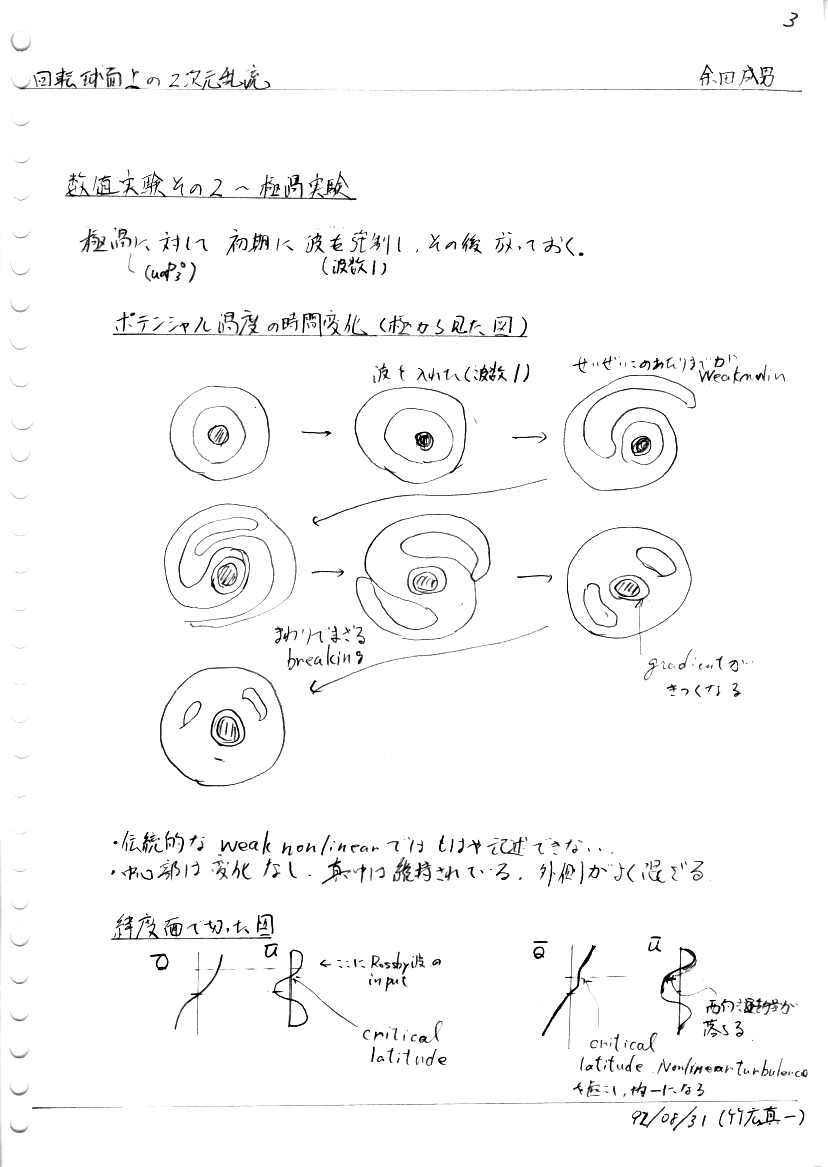 3
回転球面上の2次元乱流 余田成男
数値実験その2 〜 極渦実験
極渦に対して 初期に 波を強制し、その後 放っておく。
(波数1)
ポテンシャル渦度の時間変化 (極から見た図)
波を入れた(波数1)
せいぜいこのあたりまでが
weak nonlin
まわりでまざる
breaking
gradientが
きつくなる
・伝統的な weak nonlinear ではもはや記述できない.
・中心部は変化なし. 真中は維持されている. 外側がよく混ざる.
緯度面で切った図
Q̄ Ū ←ここにRossby波の
input
critical
latitude
Q̄ Ū
西向き運動量が
落ちる
critical
latitude. Nonlinear turbulence
を起こし, 均一になる
92/08/31 (竹広真一)